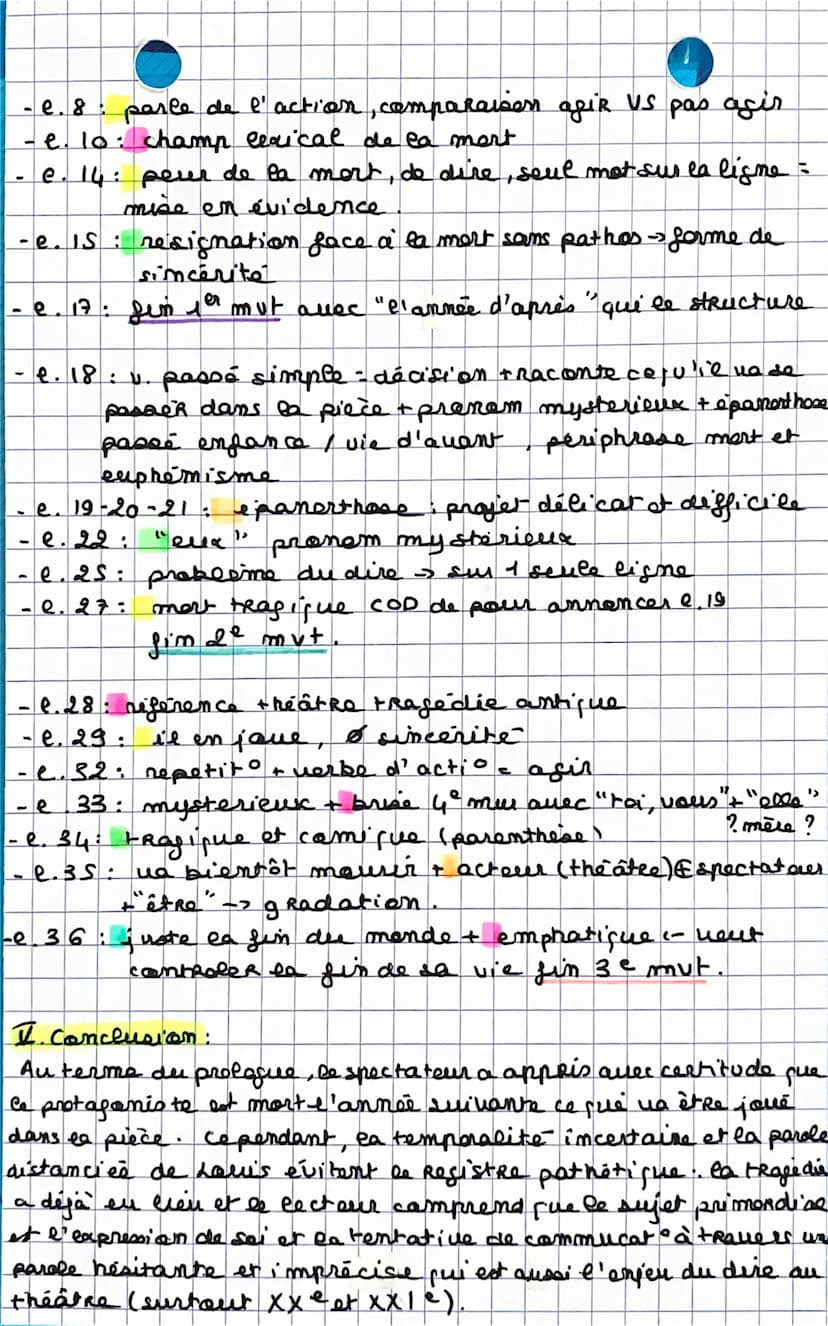 - l. 8 : parle de l'action, comparaison agir VS pas agir
- l. 10 : champ lexical de la mort
- l. 14 : peur de la mort, de dire, seul mot sur la ligne =
mise en évidence.
- l. 15 : résignation face à la mort sans pathos → forme de
sincérité
- l. 17 : fin 1er mvt avec "l'année d'après" qui le structure
- l. 18 : v. passé simple = décision + raconte ce qu'il va se
passer dans la pièce + pronom mysterieux + épanorthose
passé enfance / vie d'avant, périphrase mort et
euphémisme
- l. 19-20-21 : épanorthose : projet délicat et difficile
- l. 22 : "eux" pronom mystérieux
- l. 25 : problème du dire → sur 1 seule ligne
- l. 27 : mort tragique COD de pour annoncer l. 19
fin 2e mvt.
- l. 28 : référence théâtre tragédie antique
- l. 29 : il en joue, ø sincérité
- l. 32 : repetit° + verbe d'actio = agir
- l. 33 : mysterieux + brise 4e mur avec "toi, vous" + "elle"
? mère ?
- l. 34 : tragique et comique (parenthèse)
- l. 35 : va bientôt mourir + acteur (théâtre) € spectateur
+ "être" -> gradation.
- l. 36 : juste la fin du monde + emphatique <- veut
controler la fin de sa vie fin 3e mvt.
V. Conclusion :
Au terme du prologue, le spectateur a appris avec certitude que
le protagoniste est mort l'année suivante ce qui va être joué
dans la pièce. Cependant, la temporalité incertaine et la parole
distanciée de Louis évitent le registre pathétique : la tragédie
a déjà eu lieu et le lecteur comprend que le sujet primordial
est l'expression de soi et la tentative de commucat° à travers un
parole hésitante et imprécise qui est aussi l'enjeu du dire au
théâtre (surtout XXe et XXIe).